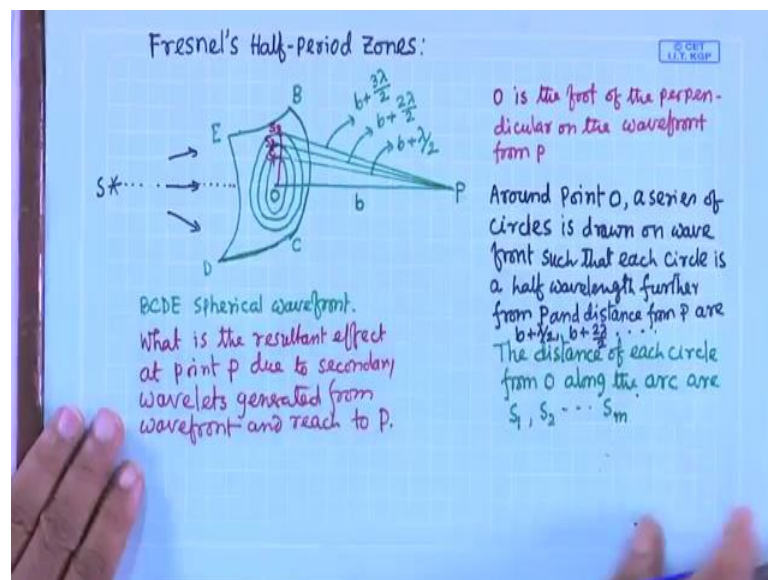 Fresnel's Half-Period Zones:
© CET
I.I.T. KGP
B
E
S*
O
b
P
D
C
b+3λ/2
b+2λ/2
b+λ/2
BCDE Spherical wavefront.
What is the resultant effect
at point P due to secondary
wavelets generated from
wavefront and reach to P.
O is the foot of the perpen-
dicular on the wavefront
from P
Around Point O, a series of
circles is drawn on wave
front such that each circle is
a half wavelength further
from P and distance from P are
b+λ/2, b+2λ/2 .....
The distance of each circle
from O along the arc are
S₁, S₂ --- Sm